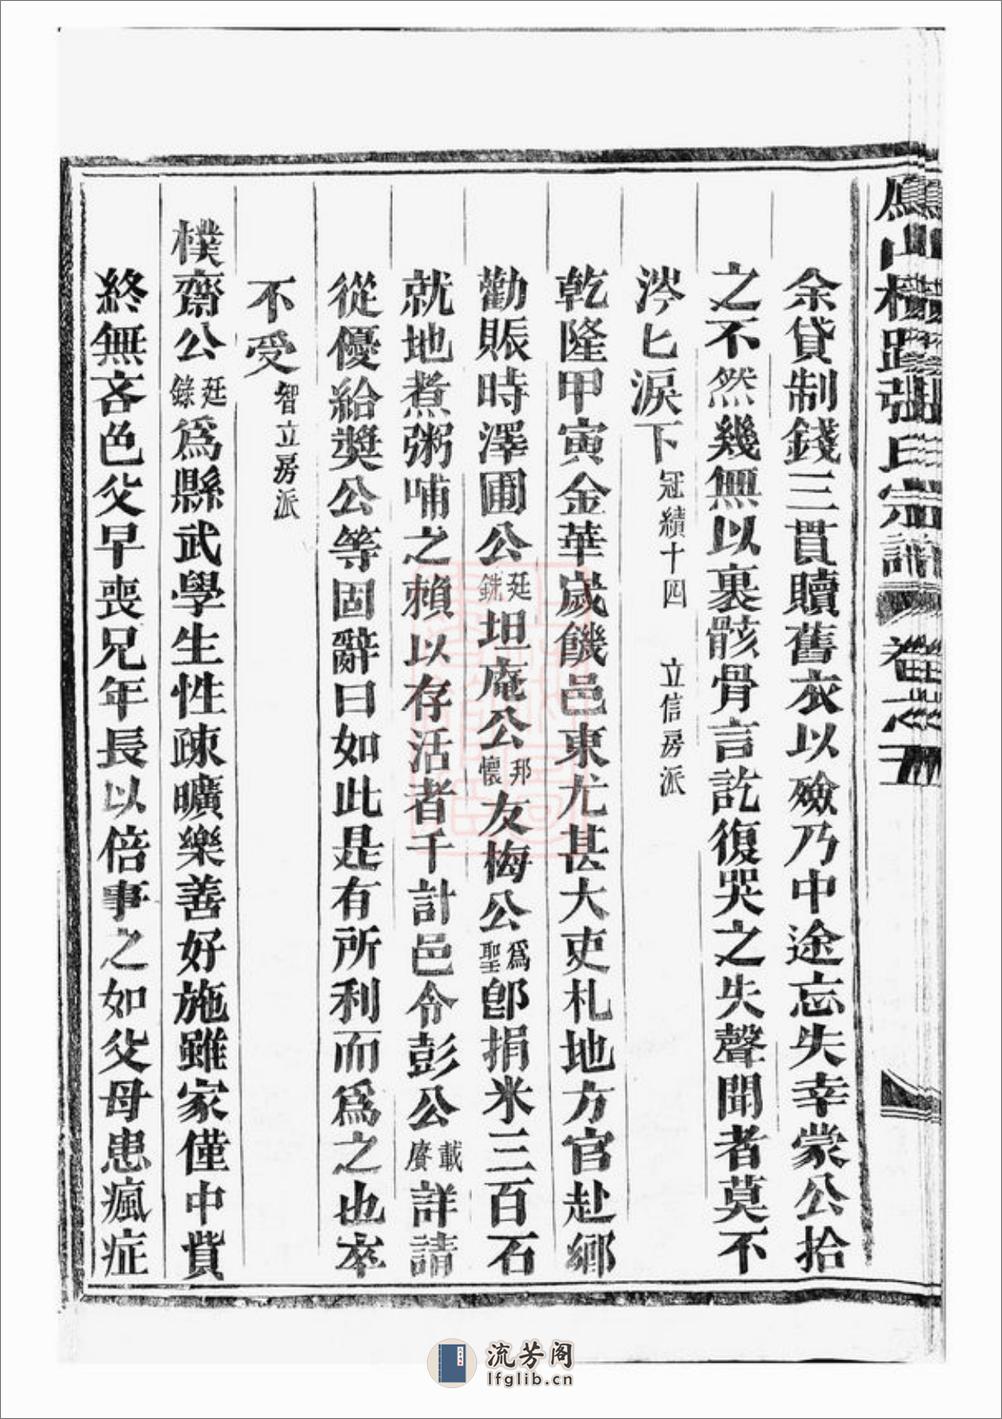 余貸制錢三貫贖舊衣以殮乃中途忘失幸蒙公拾
之不然幾無以裹骸骨言訖復哭之失聲聞者莫不
涔匕淚下冠績十四 立信房派
乾隆甲寅金華歲饑邑東尤甚大吏札地方官赴鄉
勸賑時澤圃公廷銑坦庵公邦懷友梅公為聖卽捐米三百石
就地煮粥哺之賴以存活者千計邑令彭公載賡詳請
從優給奬公等固辭曰如此是有所利而為之也卒
不受智立房派
樸齋公廷錄為縣武學生性疎曠樂善好施雖家僅中貲
終無吝色父早喪兄年長以倍事之如父母患瘋症
張氏宗譜
流芳阁
lfglib.cn